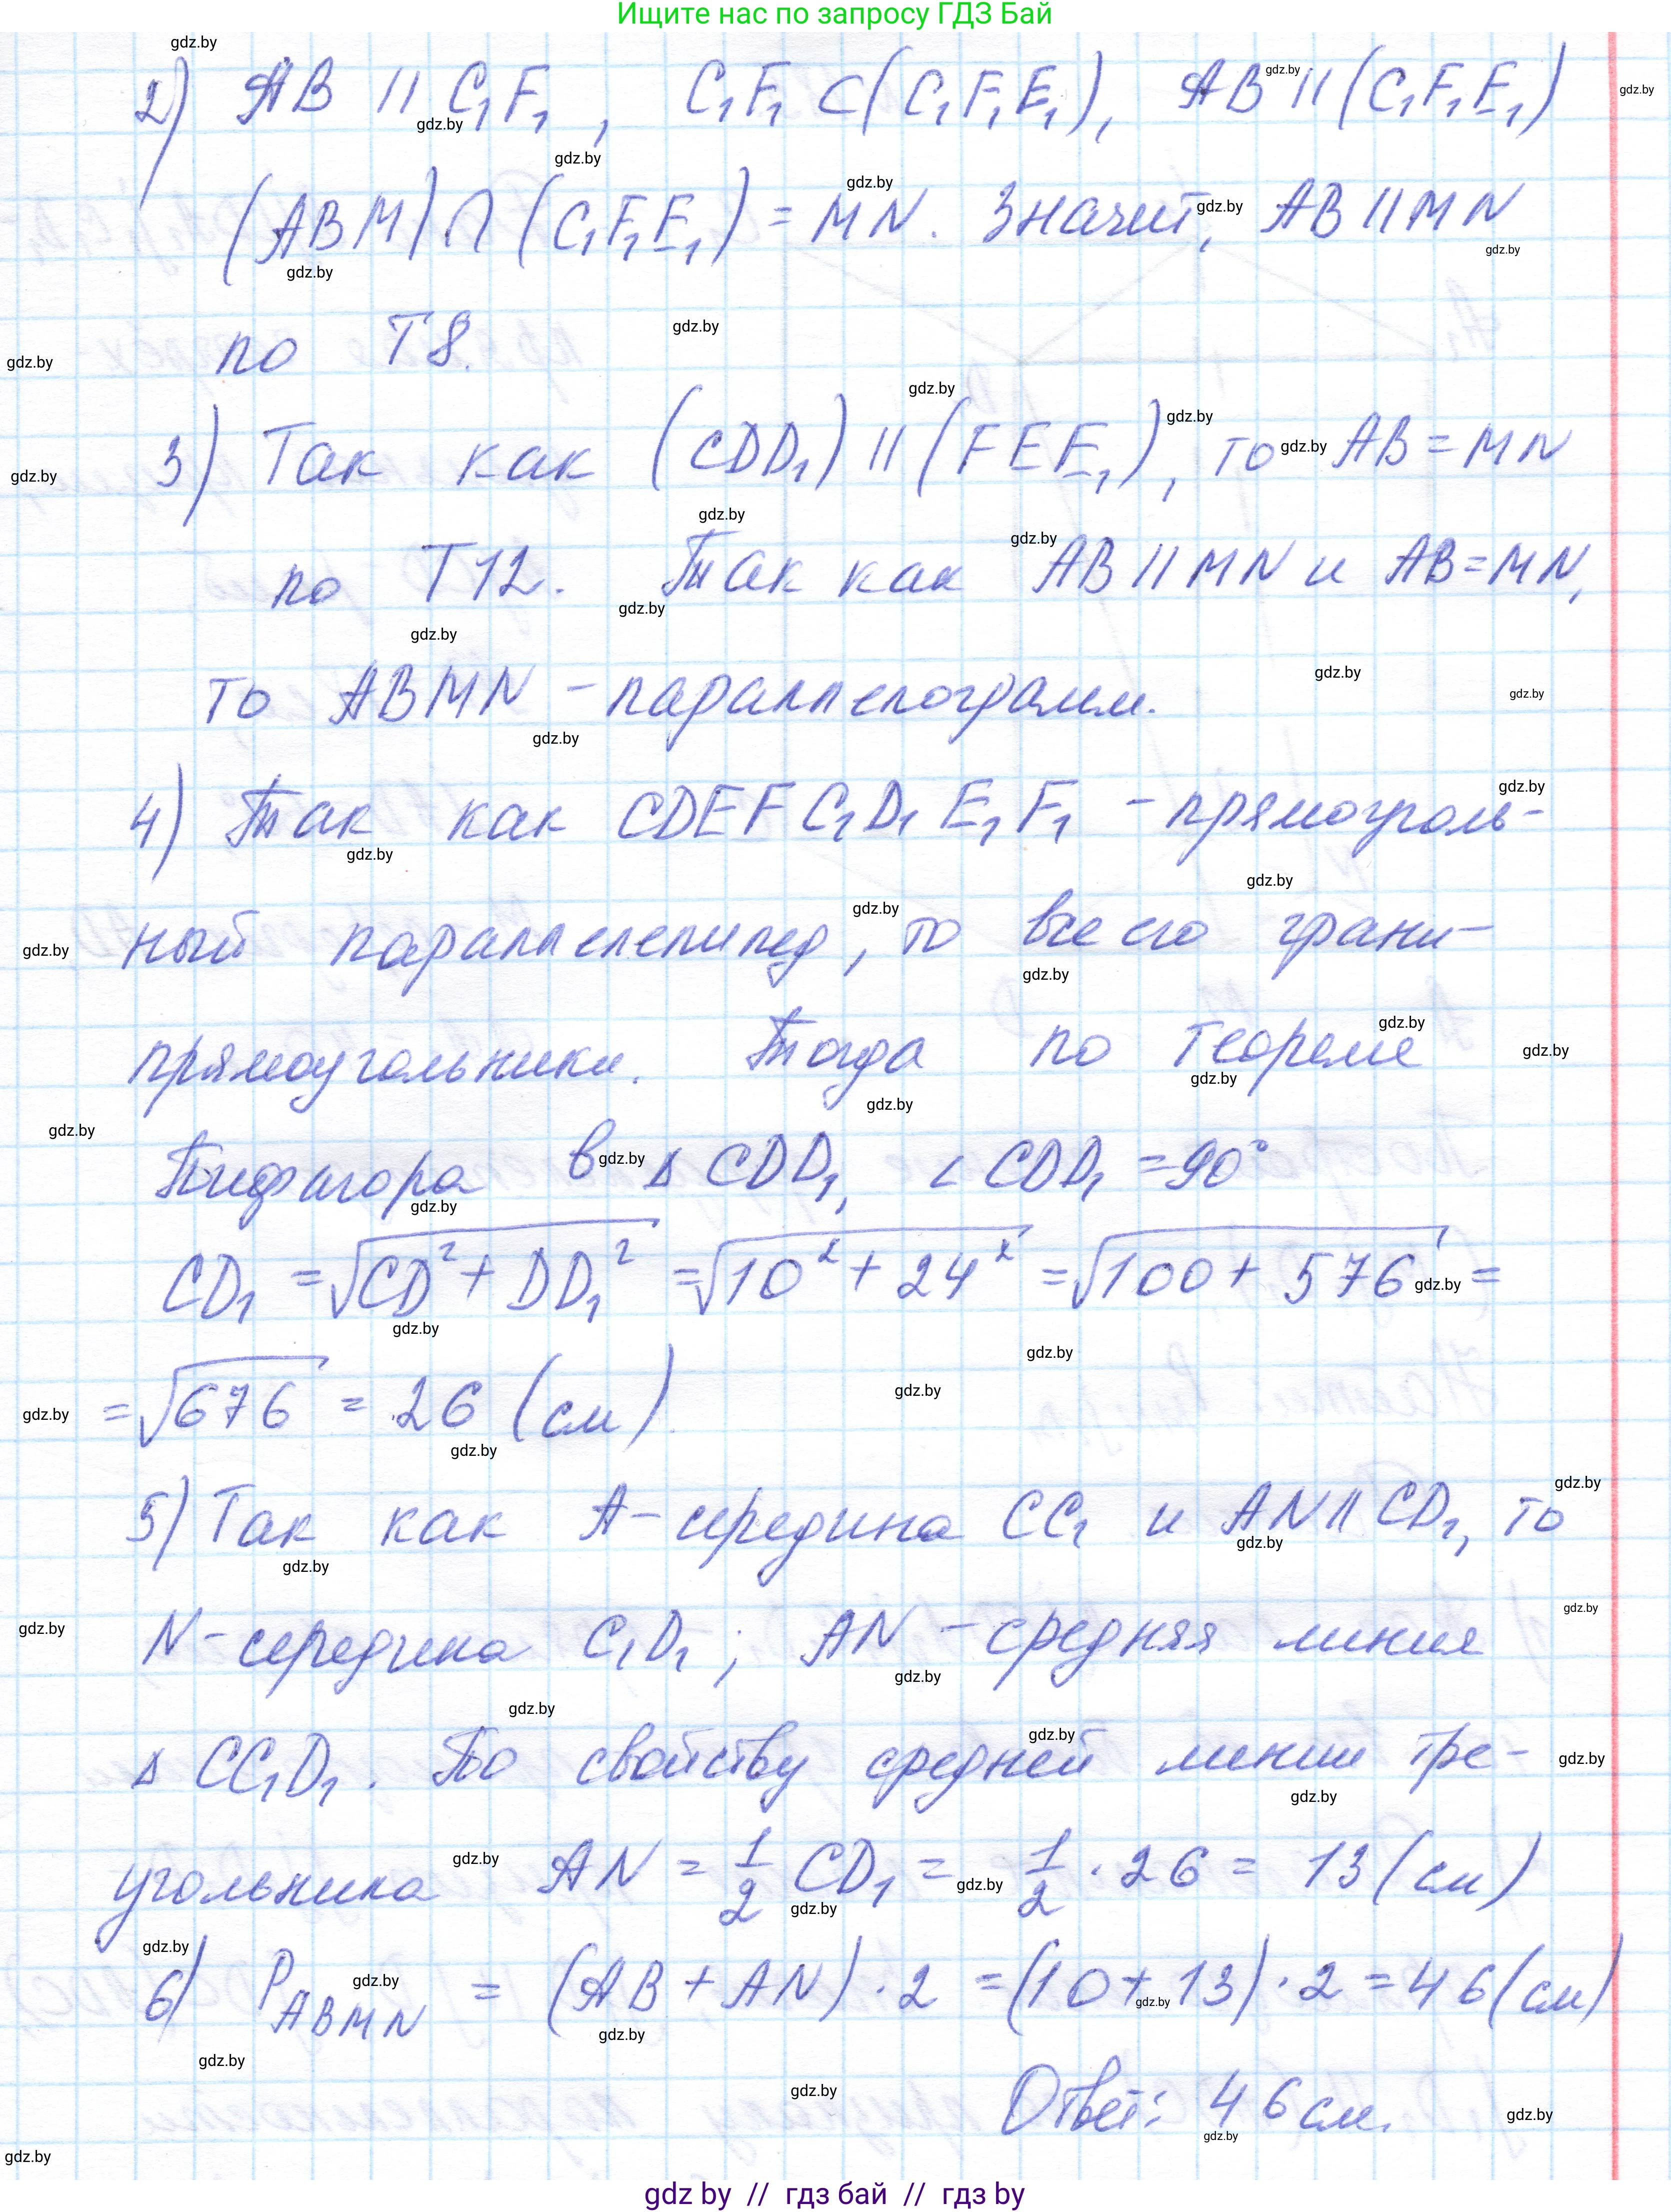 Ищите нас по запросу ГДЗ Бай
2) AB || C₁F₁, C₁F₁ ⊂ (C₁F₁E₁), AB || (C₁F₁E₁)
(ABM) ∩ (C₁F₁E₁) = MN. Значит, AB || MN
по Т8.
3) Так как (CDD₁) || (FEE₁), то AB = MN
по Т12. Так как AB || MN и AB = MN,
то ABMN - параллелограмм.
4) Так как CDEFC₁D₁E₁F₁ - прямоуголь-
ный параллелепипед, то все его грани-
прямоугольники. Тогда по теореме
Пифагора в Δ CDD₁, ∠ CDD₁ = 90°
CD₁ = √(CD² + DD₁²) = √(10² + 24²) = √(100 + 576) =
= √676 = 26 (см)
5) Так как A - середина CC₁ и AN || CD₁, то
N - середина C₁D₁; AN - средняя линия
Δ CC₁D₁. По свойству средней линии тре-
угольника AN = 1/2 CD₁ = 1/2 · 26 = 13 (см)
6) P ABMN = (AB + AN) · 2 = (10 + 13) · 2 = 46 (см)
Ответ: 46 см.
gdz by // гдз бай // гдз by